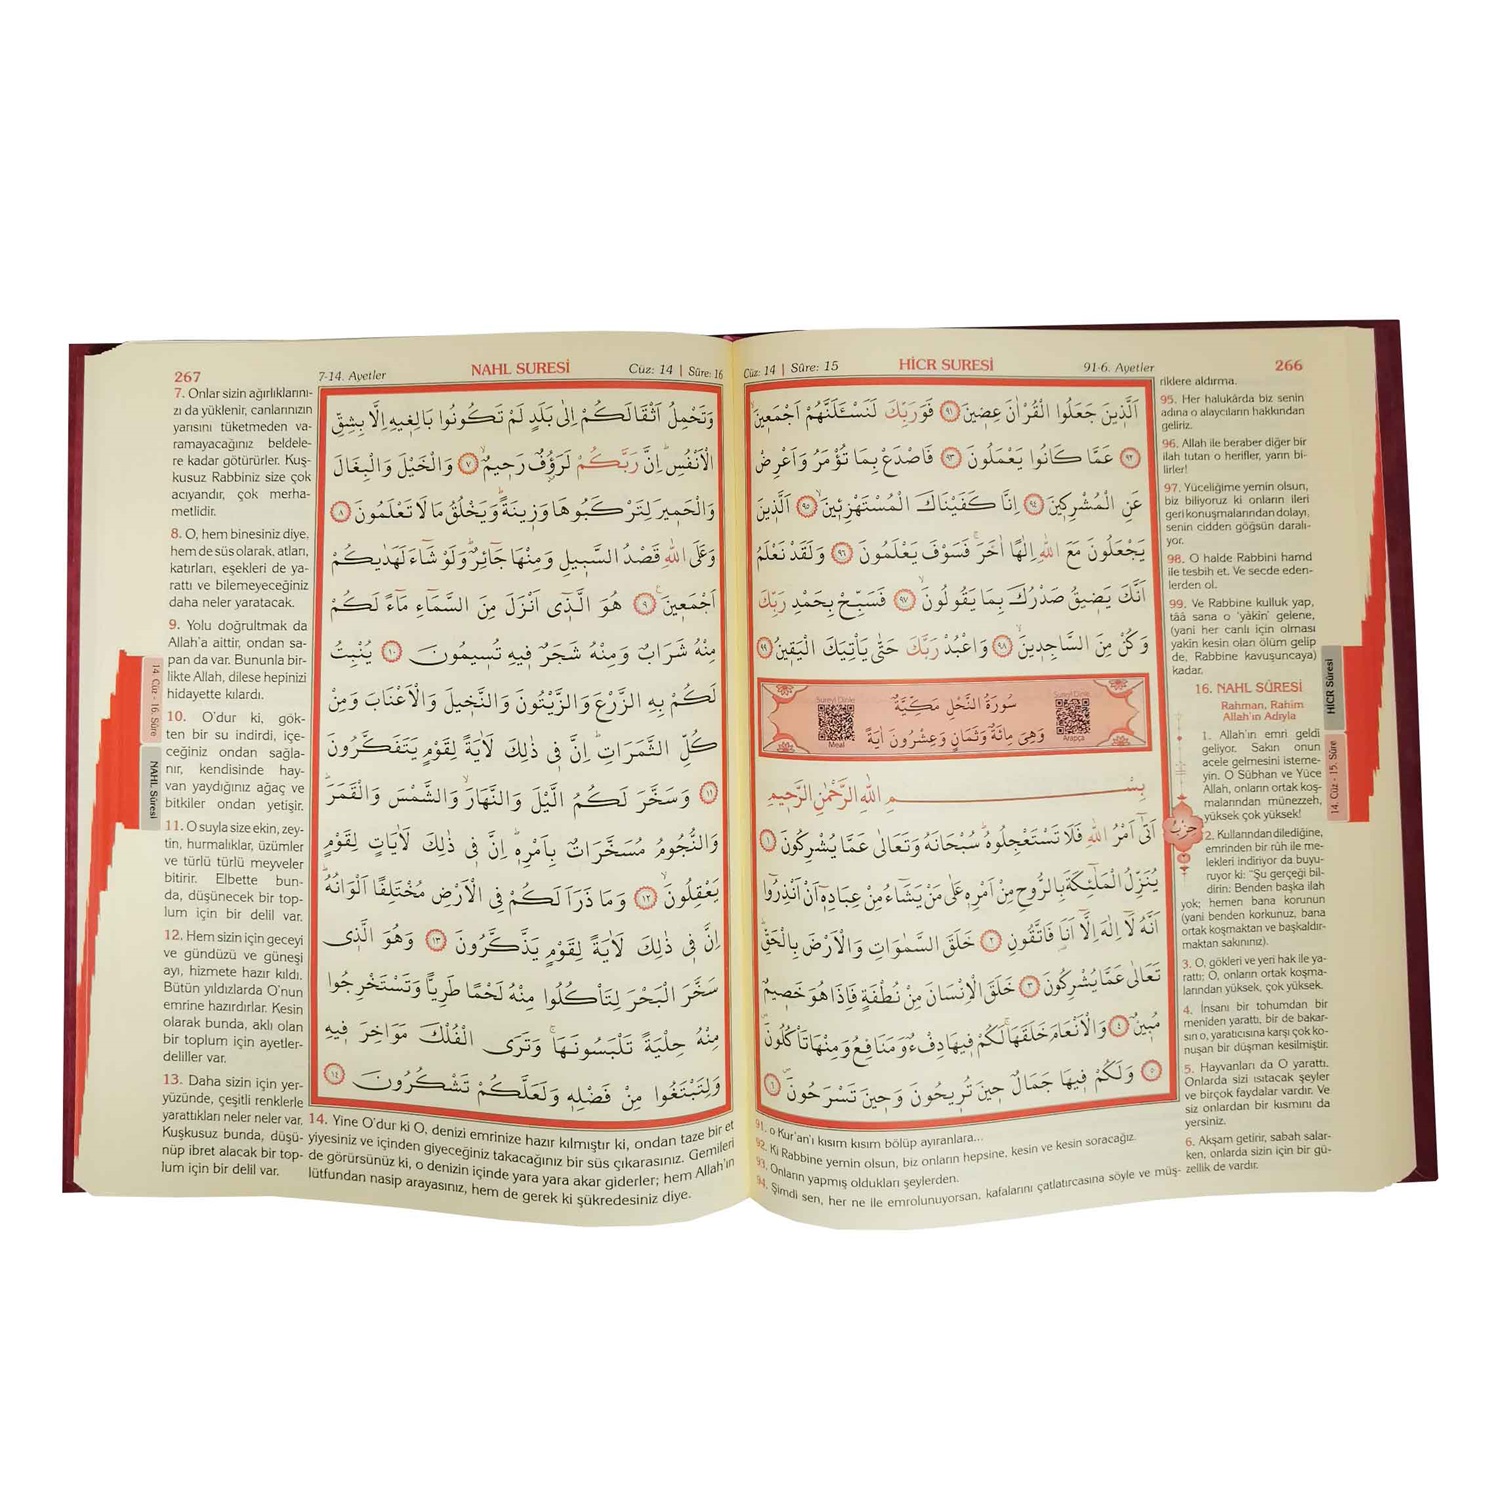 266
HİCR SURESİ
91-6. Ayetler
Cüz: 14 | Sûre: 15
اَلَّذ۪ينَ جَعَلُوا الْقُرْاٰنَ عِض۪ينَ ﴿٩١﴾ فَوَرَبِّكَ لَنَسْـَٔلَنَّهُمْ اَجْمَع۪ينَۙ
﴿٩٢﴾ عَمَّا كَانُوا يَعْمَلُونَ ﴿٩٣﴾ فَاصْدَعْ بِمَا تُؤْمَرُ وَاَعْرِضْ
عَنِ الْمُشْرِك۪ينَ ﴿٩٤﴾ اِنَّا كَفَيْنَاكَ الْمُسْتَهْزِء۪ينَۙ ﴿٩٥﴾ اَلَّذ۪ينَ
يَجْعَلُونَ مَعَ اللّٰهِ اِلٰهًا اٰخَرَۚ فَسَوْفَ يَعْلَمُونَ ﴿٩٦﴾ وَلَقَدْ نَعْلَمُ
اَنَّكَ يَض۪يقُ صَدْرُكَ بِمَا يَقُولُونَۙ ﴿٩٧﴾ فَسَبِّحْ بِحَمْدِ رَبِّكَ
وَكُنْ مِنَ السَّاجِد۪ينَۙ ﴿٩٨﴾ وَاعْبُدْ رَبَّكَ حَتّٰى يَأْتِيَكَ الْيَق۪ينُ ﴿٩٩﴾
سُورَةُ النَّحْلِ مَكِّيَّةٌ
وَهِيَ مِائَةٌ وَثَمَانٍ وَعِشْرُونَ اٰيَةً
Sureyi Dinle
Arapça
Sureyi Dinle
Meal
بِسْمِ اللّٰهِ الرَّحْمٰنِ الرَّح۪يمِ
اَتٰٓى اَمْرُ اللّٰهِ فَلَا تَسْتَعْجِلُوهُۜ سُبْحَانَهُ وَتَعَالٰى عَمَّا يُشْرِكُونَ ﴿١﴾
يُنَزِّلُ الْمَلٰٓئِكَةَ بِالرُّوحِ مِنْ اَمْرِه۪ عَلٰى مَنْ يَشَٓاءُ مِنْ عِبَادِه۪ٓ اَنْ اَنْذِرُٓوا
اَنَّهُ لَٓا اِلٰهَ اِلَّٓا اَنَا۬ فَاتَّقُونِ ﴿٢﴾ خَلَقَ السَّمٰوَاتِ وَالْاَرْضَ بِالْحَقِّۜ
تَعَالٰى عَمَّا يُشْرِكُونَ ﴿٣﴾ خَلَقَ الْاِنْسَانَ مِنْ نُطْفَةٍ فَاِذَا هُوَ خَص۪يمٌ
مُب۪ينٌ ﴿٤﴾ وَالْاَنْعَامَ خَلَقَهَاۚ لَكُمْ ف۪يهَا دِفْءٌ وَمَنَافِعُ وَمِنْهَا تَأْكُلُونَۖ
﴿٥﴾ وَلَكُمْ ف۪يهَا جَمَالٌ ح۪ينَ تُر۪يحُونَ وَح۪ينَ تَسْرَحُونَۖ ﴿٦﴾
حزب
91. o Kur'an'ı kısım kısım bölüp ayıranlara...
92. Ki Rabbine yemin olsun, biz onların hepsine, kesin ve kesin soracağız.
93. Onların yapmış oldukları şeylerden.
94. Şimdi sen, her ne ile emrolunuyorsan, kafalarını çatlatırcasına söyle ve müş-
riklere aldırma.
95. Her halukârda biz senin
adına o alaycıların hakkından
geliriz.
96. Allah ile beraber diğer bir
ilah tutan o herifler, yarın bi-
lirler!
97. Yüceliğime yemin olsun,
biz biliyoruz ki onların ileri
geri konuşmalarından dolayı,
senin cidden göğsün daralı-
yor.
98. O halde Rabbini hamd
ile tesbih et. Ve secde eden-
lerden ol.
99. Ve Rabbine kulluk yap,
tââ sana o 'yâkîn' gelene,
(yani her canlı için olması
yakîn kesin olan ölüm gelip
de, Rabbine kavuşuncaya)
kadar.
16. NAHL SÛRESİ
Rahman, Rahim
Allah'ın Adıyla
1. Allah'ın emri geldi
geliyor. Sakın onun
acele gelmesini isteme-
yin. O Sübhan ve Yüce
Allah, onların ortak koş-
malarından münezzeh,
yüksek çok yüksek!
2. Kullarından dilediğine,
emrinden bir rûh ile me-
lekleri indiriyor da buyu-
ruyor ki: "Şu gerçeği bil-
dirin: Benden başka ilah
yok; hemen bana korunun
(yani benden korkunuz, bana
ortak koşmaktan ve başkaldır-
maktan sakınınız).
3. O, gökleri ve yeri hak ile ya-
rattı; O, onların ortak koşma-
larından yüksek, çok yüksek.
4. İnsanı bir tohumdan bir
meniden yarattı, bir de bakar-
sın o, yaratıcısına karşı çok ko-
nuşan bir düşman kesilmiştir.
5. Hayvanları da O yarattı.
Onlarda sizi ısıtacak şeyler
ve birçok faydalar vardır. Ve
siz onlardan bir kısmını da
yersiniz.
6. Akşam getirir, sabah salar-
ken, onlarda sizin için bir gü-
zellik de vardır.
HİCR Sûresi
14. Cüz - 15. Sûre
267
7-14. Ayetler
NAHL SURESİ
Cüz: 14 | Sûre: 16
وَتَحْمِلُ اَثْقَالَكُمْ اِلٰى بَلَدٍ لَمْ تَكُونُوا بَالِغ۪يهِ اِلَّا بِشِقِّ
الْاَنْفُسِۜ اِنَّ رَبَّكُمْ لَرَؤُ۫فٌ رَح۪يمٌۙ ﴿٧﴾ وَالْخَيْلَ وَالْبِغَالَ
وَالْحَم۪يرَ لِتَرْكَبُوهَا وَز۪ينَةًۜ وَيَخْلُقُ مَا لَا تَعْلَمُونَ ﴿٨﴾
وَعَلَى اللّٰهِ قَصْدُ السَّب۪يلِ وَمِنْهَا جَٓائِرٌۜ وَلَوْ شَٓاءَ لَهَدٰيكُمْ
اَجْمَع۪ينَ۟ ﴿٩﴾ هُوَ الَّذ۪ٓي اَنْزَلَ مِنَ السَّمَٓاءِ مَٓاءً لَكُمْ
مِنْهُ شَرَابٌ وَمِنْهُ شَجَرٌ ف۪يهِ تُس۪يمُونَ ﴿١٠﴾ يُنْبِتُ
لَكُمْ بِهِ الزَّرْعَ وَالزَّيْتُونَ وَالنَّخ۪يلَ وَالْاَعْنَابَ وَمِنْ
كُلِّ الثَّمَرَاتِۜ اِنَّ ف۪ي ذٰلِكَ لَاٰيَةً لِقَوْمٍ يَتَفَكَّرُونَ
﴿١١﴾ وَسَخَّرَ لَكُمُ الَّيْلَ وَالنَّهَارَۙ وَالشَّمْسَ وَالْقَمَرَۜ
وَالنُّجُومُ مُسَخَّرَاتٌ بِاَمْرِه۪ۜ اِنَّ ف۪ي ذٰلِكَ لَاٰيَاتٍ لِقَوْمٍ
يَعْقِلُونَۙ ﴿١٢﴾ وَمَا ذَرَاَ لَكُمْ فِي الْاَرْضِ مُخْتَلِفًا اَلْوَانُهُۜ
اِنَّ ف۪ي ذٰلِكَ لَاٰيَةً لِقَوْمٍ يَذَّكَّرُونَ ﴿١٣﴾ وَهُوَ الَّذ۪ي
سَخَّرَ الْبَحْرَ لِتَأْكُلُوا مِنْهُ لَحْمًا طَرِيًّا وَتَسْتَخْرِجُوا
مِنْهُ حِلْيَةً تَلْبَسُونَهَاۚ وَتَرَى الْفُلْكَ مَوَاخِرَ ف۪يهِ
وَلِتَبْتَغُوا مِنْ فَضْلِه۪ وَلَعَلَّكُمْ تَشْكُرُونَ ﴿١٤﴾
7. Onlar sizin ağırlıklarını-
zı da yüklenir, canlarınızın
yarısını tüketmeden va-
ramayacağınız beldele-
re kadar götürürler. Kuş-
kusuz Rabbiniz size çok
acıyandır, çok merha-
metlidir.
8. O, hem binesiniz diye,
hem de süs olarak, atları,
katırları, eşekleri de ya-
rattı ve bilemeyeceğiniz
daha neler yaratacak.
9. Yolu doğrultmak da
Allah'a aittir, ondan sa-
pan da var. Bununla bir-
likte Allah, dilese hepinizi
hidayette kılardı.
10. O'dur ki, gök-
ten bir su indirdi, içe-
ceğiniz ondan sağla-
nır, kendisinde hay-
van yaydığınız ağaç ve
bitkiler ondan yetişir.
11. O suyla size ekin, zey-
tin, hurmalıklar, üzümler
ve türlü türlü meyveler
bitirir. Elbette bun-
da, düşünecek bir top-
lum için bir delil var.
12. Hem sizin için geceyi
ve gündüzü ve güneşi
ayı, hizmete hazır kıldı.
Bütün yıldızlarda O'nun
emrine hazırdırlar. Kesin
olarak bunda, aklı olan
bir toplum için ayetler-
deliller var.
13. Daha sizin için yer-
yüzünde, çeşitli renklerle
yarattıkları neler neler var.
Kuşkusuz bunda, düşü-
nüp ibret alacak bir top-
lum için bir delil var.
14. Yine O'dur ki O, denizi emrinize hazır kılmıştır ki, ondan taze bir et
yiyesiniz ve içinden giyeceğiniz takacağınız bir süs çıkarasınız. Gemileri
de görürsünüz ki, o denizin içinde yara yara akar giderler; hem Allah'ın
lütfundan nasip arayasınız, hem de gerek ki şükredesiniz diye.
14. Cüz - 16. Sûre
NAHL Sûresi